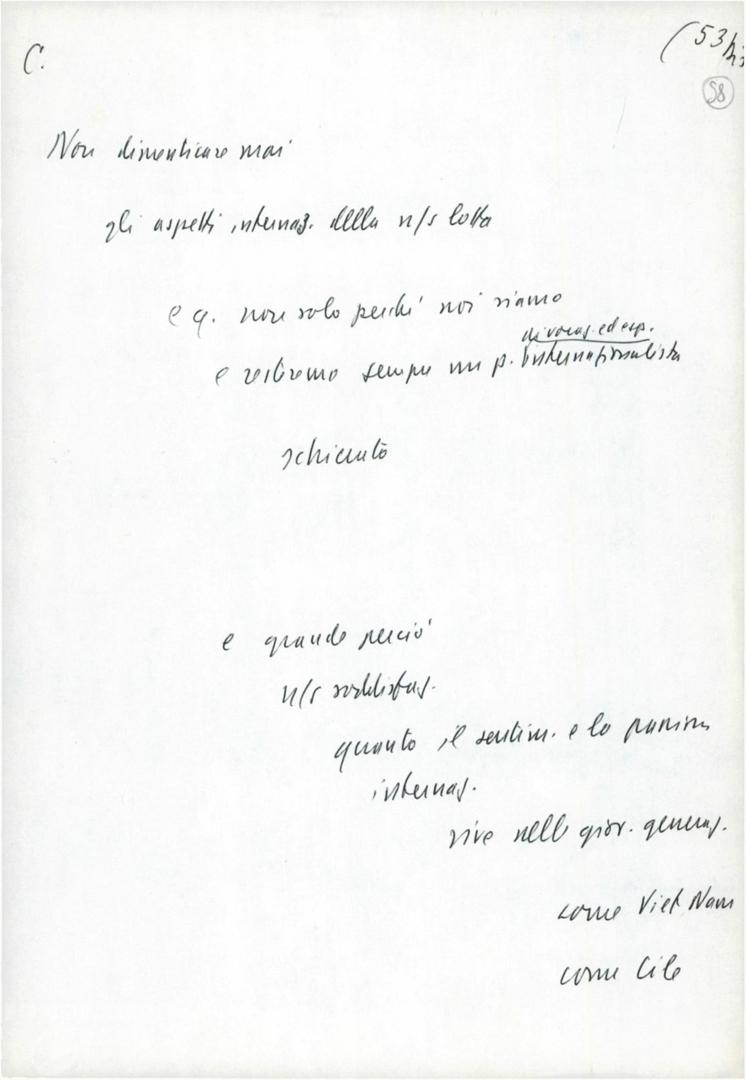 C.
(53 bis
58
Non dimenticare mai
gli aspetti internaz. della n/s lotta
e q. non solo perché noi siamo
di vocaz. ed esp.
e restiamo sempre un p. internazionalista
schierato
e grande perciò
n/s soddisfaz.
quanto il sentim. e la passione
internaz.
vive nelle giov. generaz.
come Viet Nam
come Cile